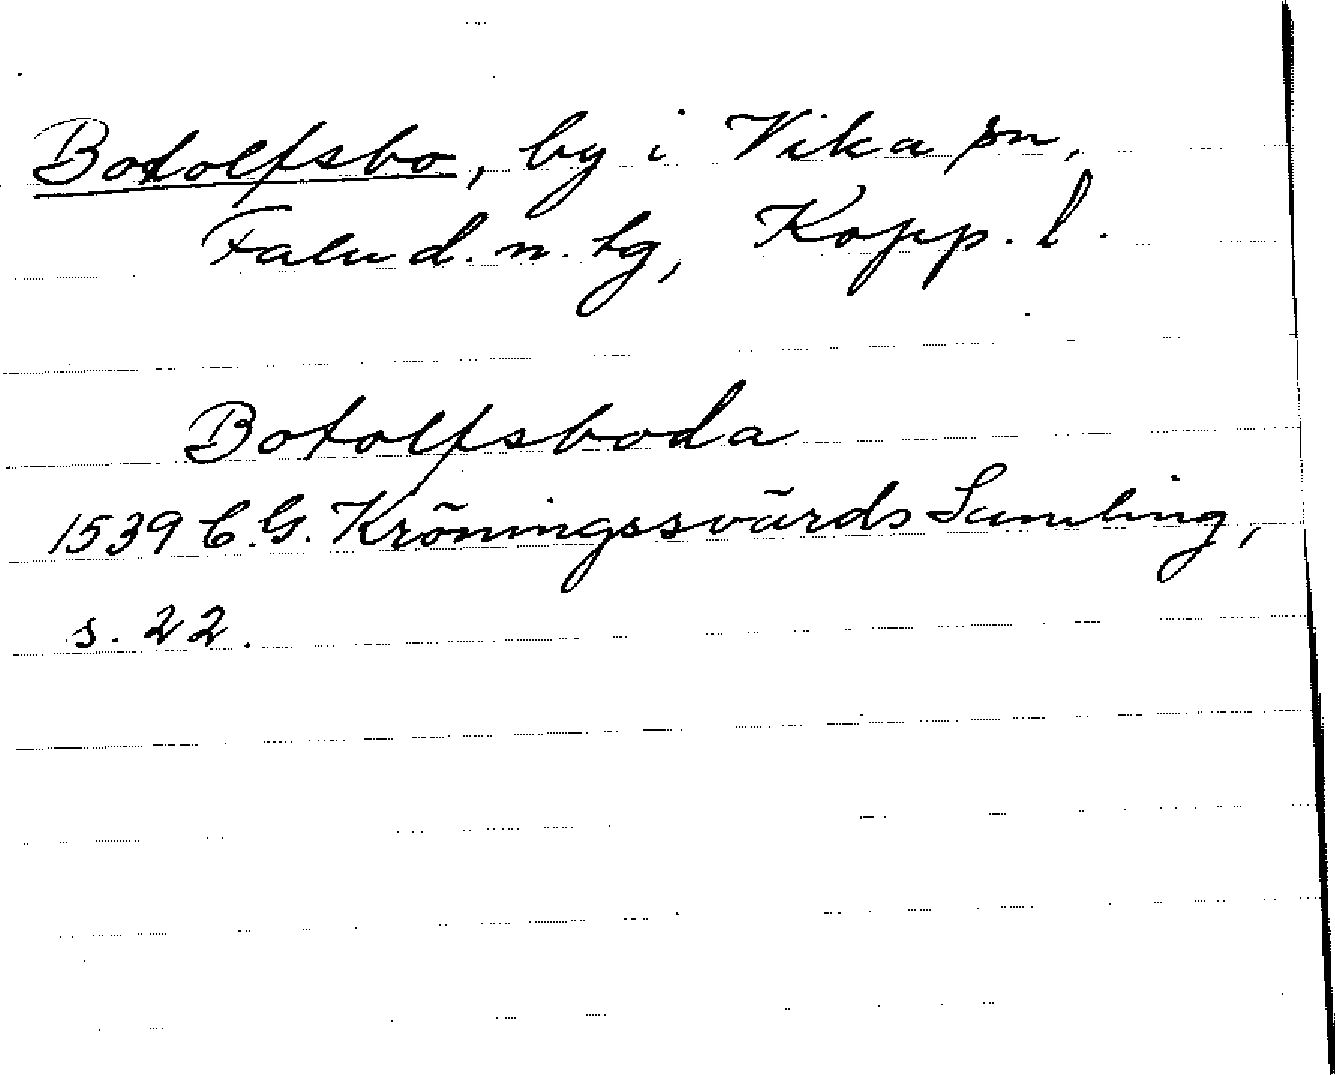 Botolfsbo, by i Vika sn,
Falu d. n. tg, Kopp. l.
Botolfsboda
1539 C. G. Kröningssvärds Samling,
s. 22.